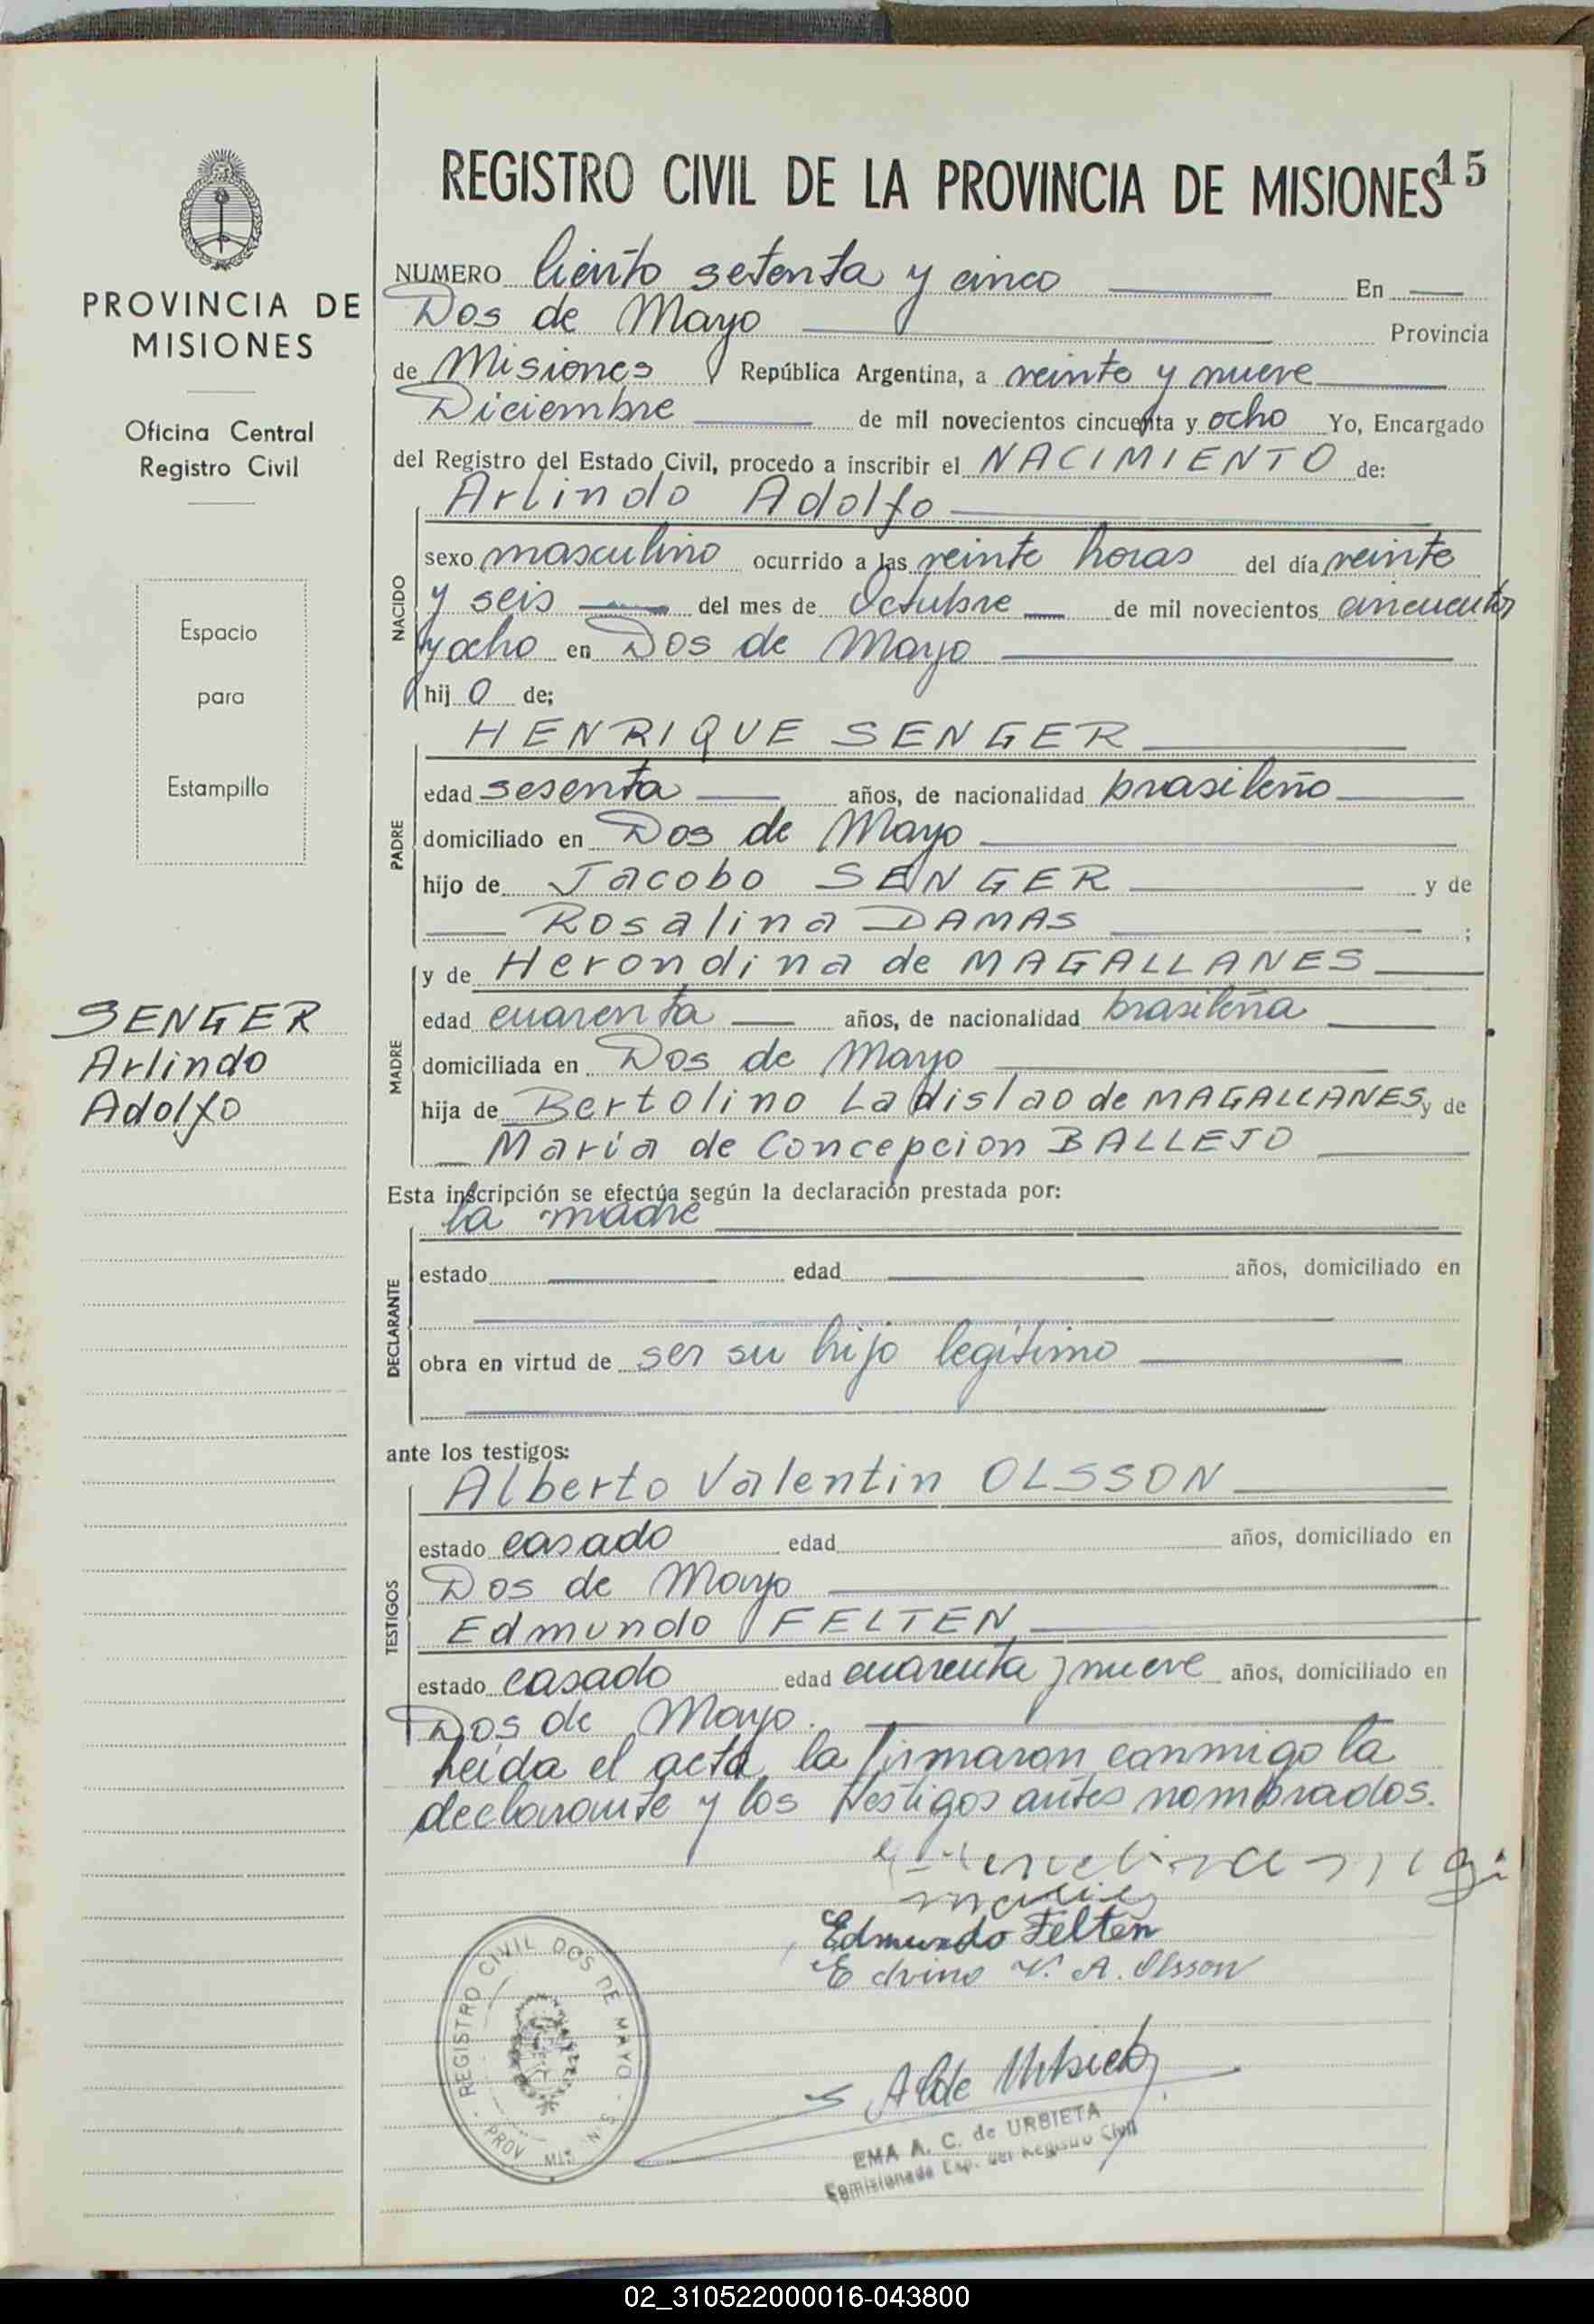 REGISTRO CIVIL DE LA PROVINCIA DE MISIONES 15
PROVINCIA DE
MISIONES
Oficina Central
Registro Civil
Espacio
para
Estampilla
SENGER
Arlindo
Adolfo
NUMERO Ciento setenta y cinco En
Dos de Mayo Provincia
de Misiones República Argentina, a veinte y nueve
Diciembre de mil novecientos cincuenta y ocho Yo, Encargado
del Registro del Estado Civil, procedo a inscribir el NACIMIENTO de:
Arlindo Adolfo
NACIDO
sexo masculino ocurrido a las veinte horas del día veinte
y seis del mes de Octubre de mil novecientos cincuenta
y ocho en Dos de Mayo
hij o de;
HENRIQUE SENGER
PADRE
edad sesenta años, de nacionalidad brasileño
domiciliado en Dos de Mayo
hijo de Jacobo SENGER y de
Rosalina DAMAS ;
y de Herondina de MAGALLANES
MADRE
edad cuarenta años, de nacionalidad brasileña
domiciliada en Dos de Mayo
hija de Bertolino Ladislao de MAGALLANES y de
María de Concepcion BALLEJO
Esta inscripción se efectúa según la declaración prestada por:
la madre
DECLARANTE
estado edad años, domiciliado en
obra en virtud de ser su hijo legítimo
ante los testigos:
Alberto Valentin OLSSON
TESTIGOS
estado casado edad años, domiciliado en
Dos de Mayo
Edmundo FELTEN
estado casado edad cuarenta y nueve años, domiciliado en
Dos de Mayo.
Leída el acta, la firmaron conmigo la
declarante y los testigos antes nombrados.
Edmundo Felten
Edvino V. A. Olsson
REGISTRO CIVIL DOS DE MAYO
PROV
EMA A. C. de URBIETA
Comisionada Esp. del Registro Civil
02_310522000016-043800